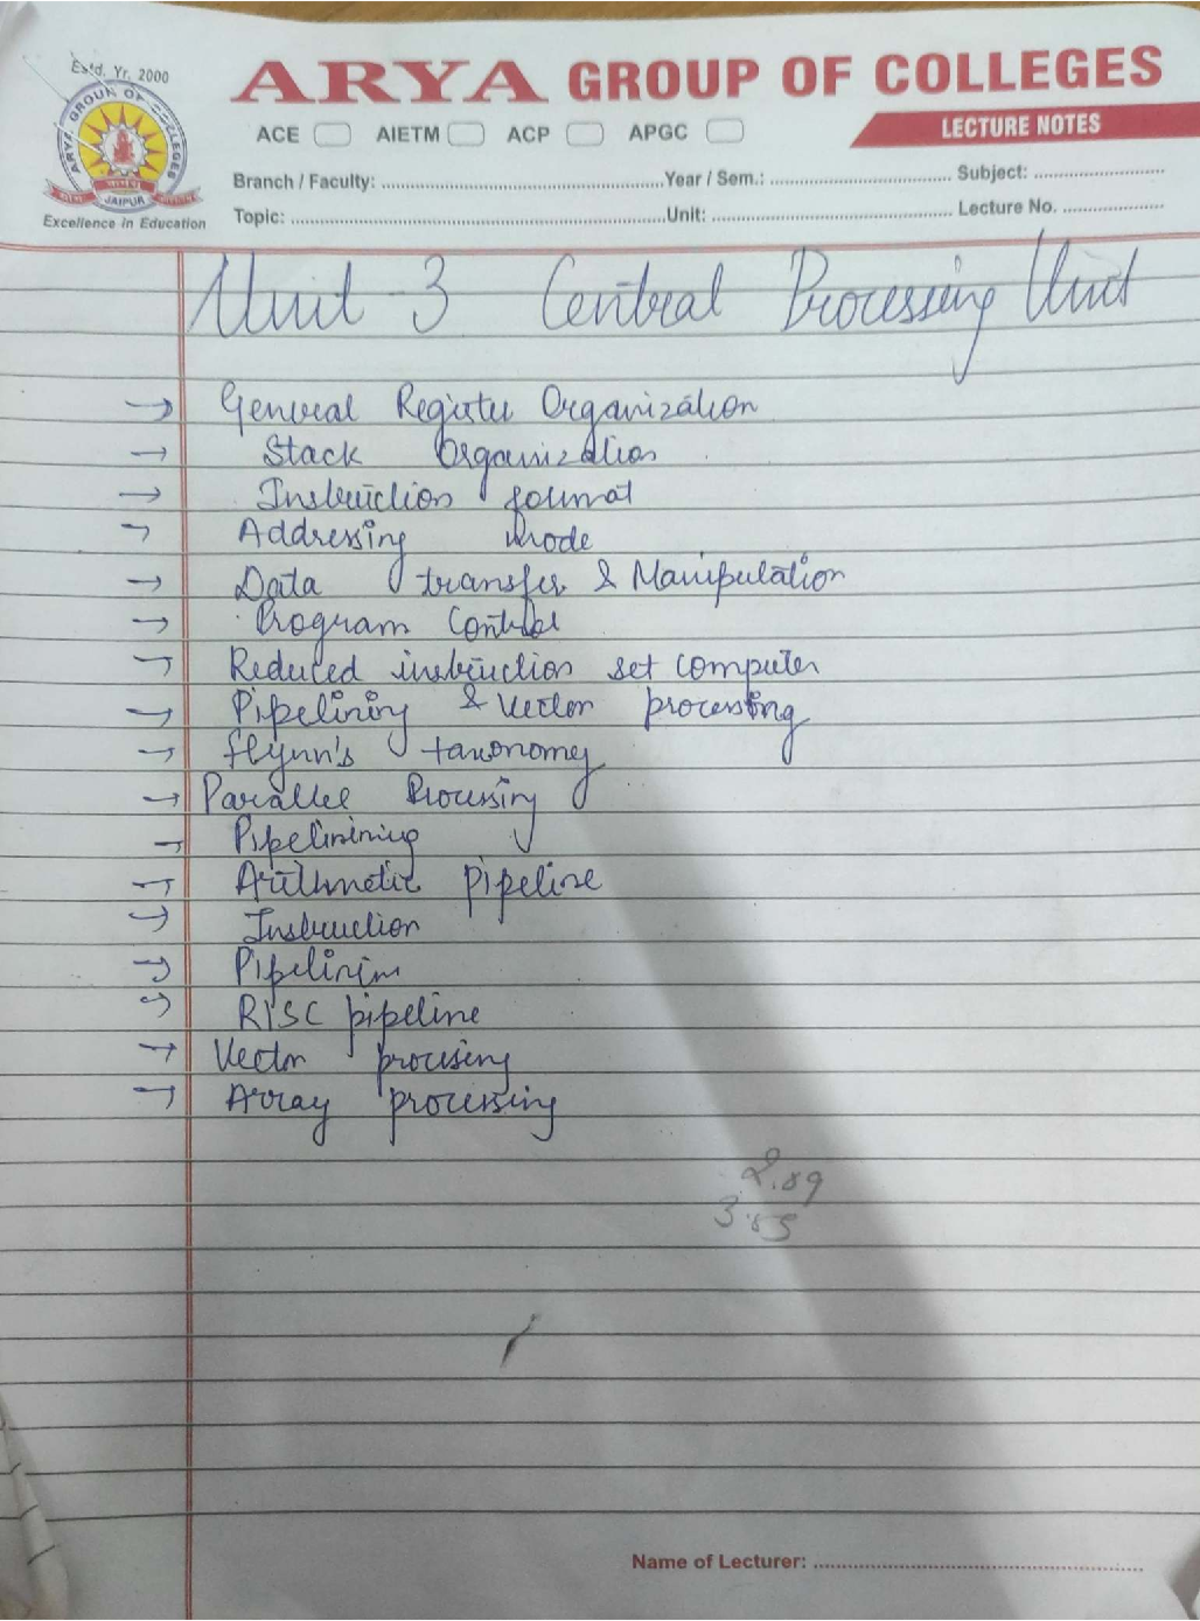 Estd. Yr. 2000
ARYA GROUP OF COLLEGES
ARYA GROUP OF COLLEGES
JAIPUR
Excellence in Education
ACE AIETM ACP APGC
LECTURE NOTES
Branch / Faculty: ..... Year / Sem.: ..... Subject: .....
Topic: ..... Unit: ..... Lecture No. .....
Unit-3 Central Processing Unit
→ General Register Organization
→ Stack Organization
→ Instruction format
→ Addressing Mode
→ Data transfer & Manipulation
→ Program Control
→ Reduced instruction set computer
→ Pipelining & Vector processing
→ flynn's taxonomy
→ Parallel Processing
→ Pipelinining
→ Arithmetic pipeline
→ Instruction
→ Pipelining
→ RISC pipeline
→ Vector processing
→ Array processing
2.89
3.55
Name of Lecturer: .....